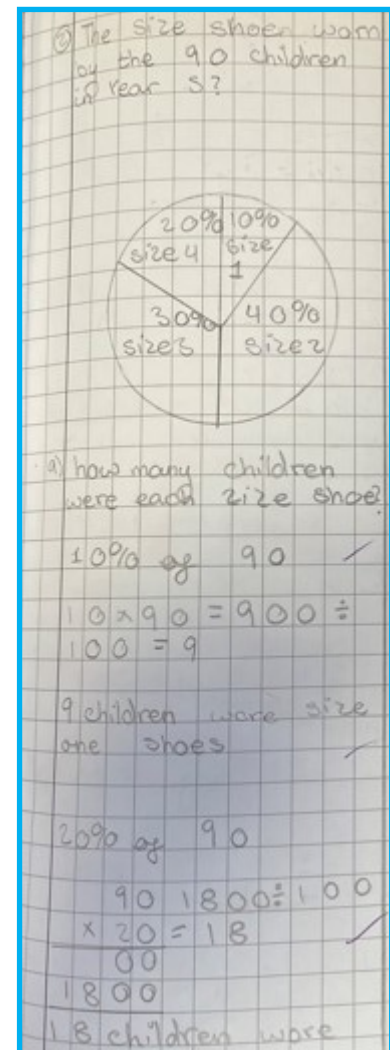 ② The size shoes worn
by the 90 children
in year 5?
20% 10%
size 4 size
1
30% 40%
size 3 size 2
a) how many children
were each zize shoe?
10% of 90
10 × 90 = 900 ÷
100 = 9
9 children wore size
one shoes
20% of 90
90 1800 ÷ 100
× 20 = 18
00
1800
18 children wore